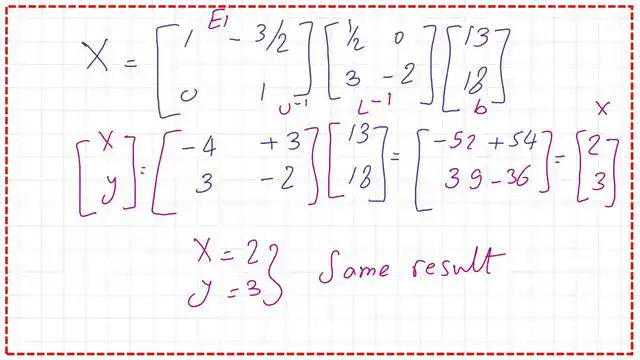 E1
X = [1 - 3/2; 0 1] [1/2 0; 3 - 2] [13; 18]
U⁻¹ L⁻¹ b
X
[X; y] = [-4 +3; 3 -2] [13; 18] = [-52 + 54; 39 - 36] = [2; 3]
X = 2
y = 3 } Same result